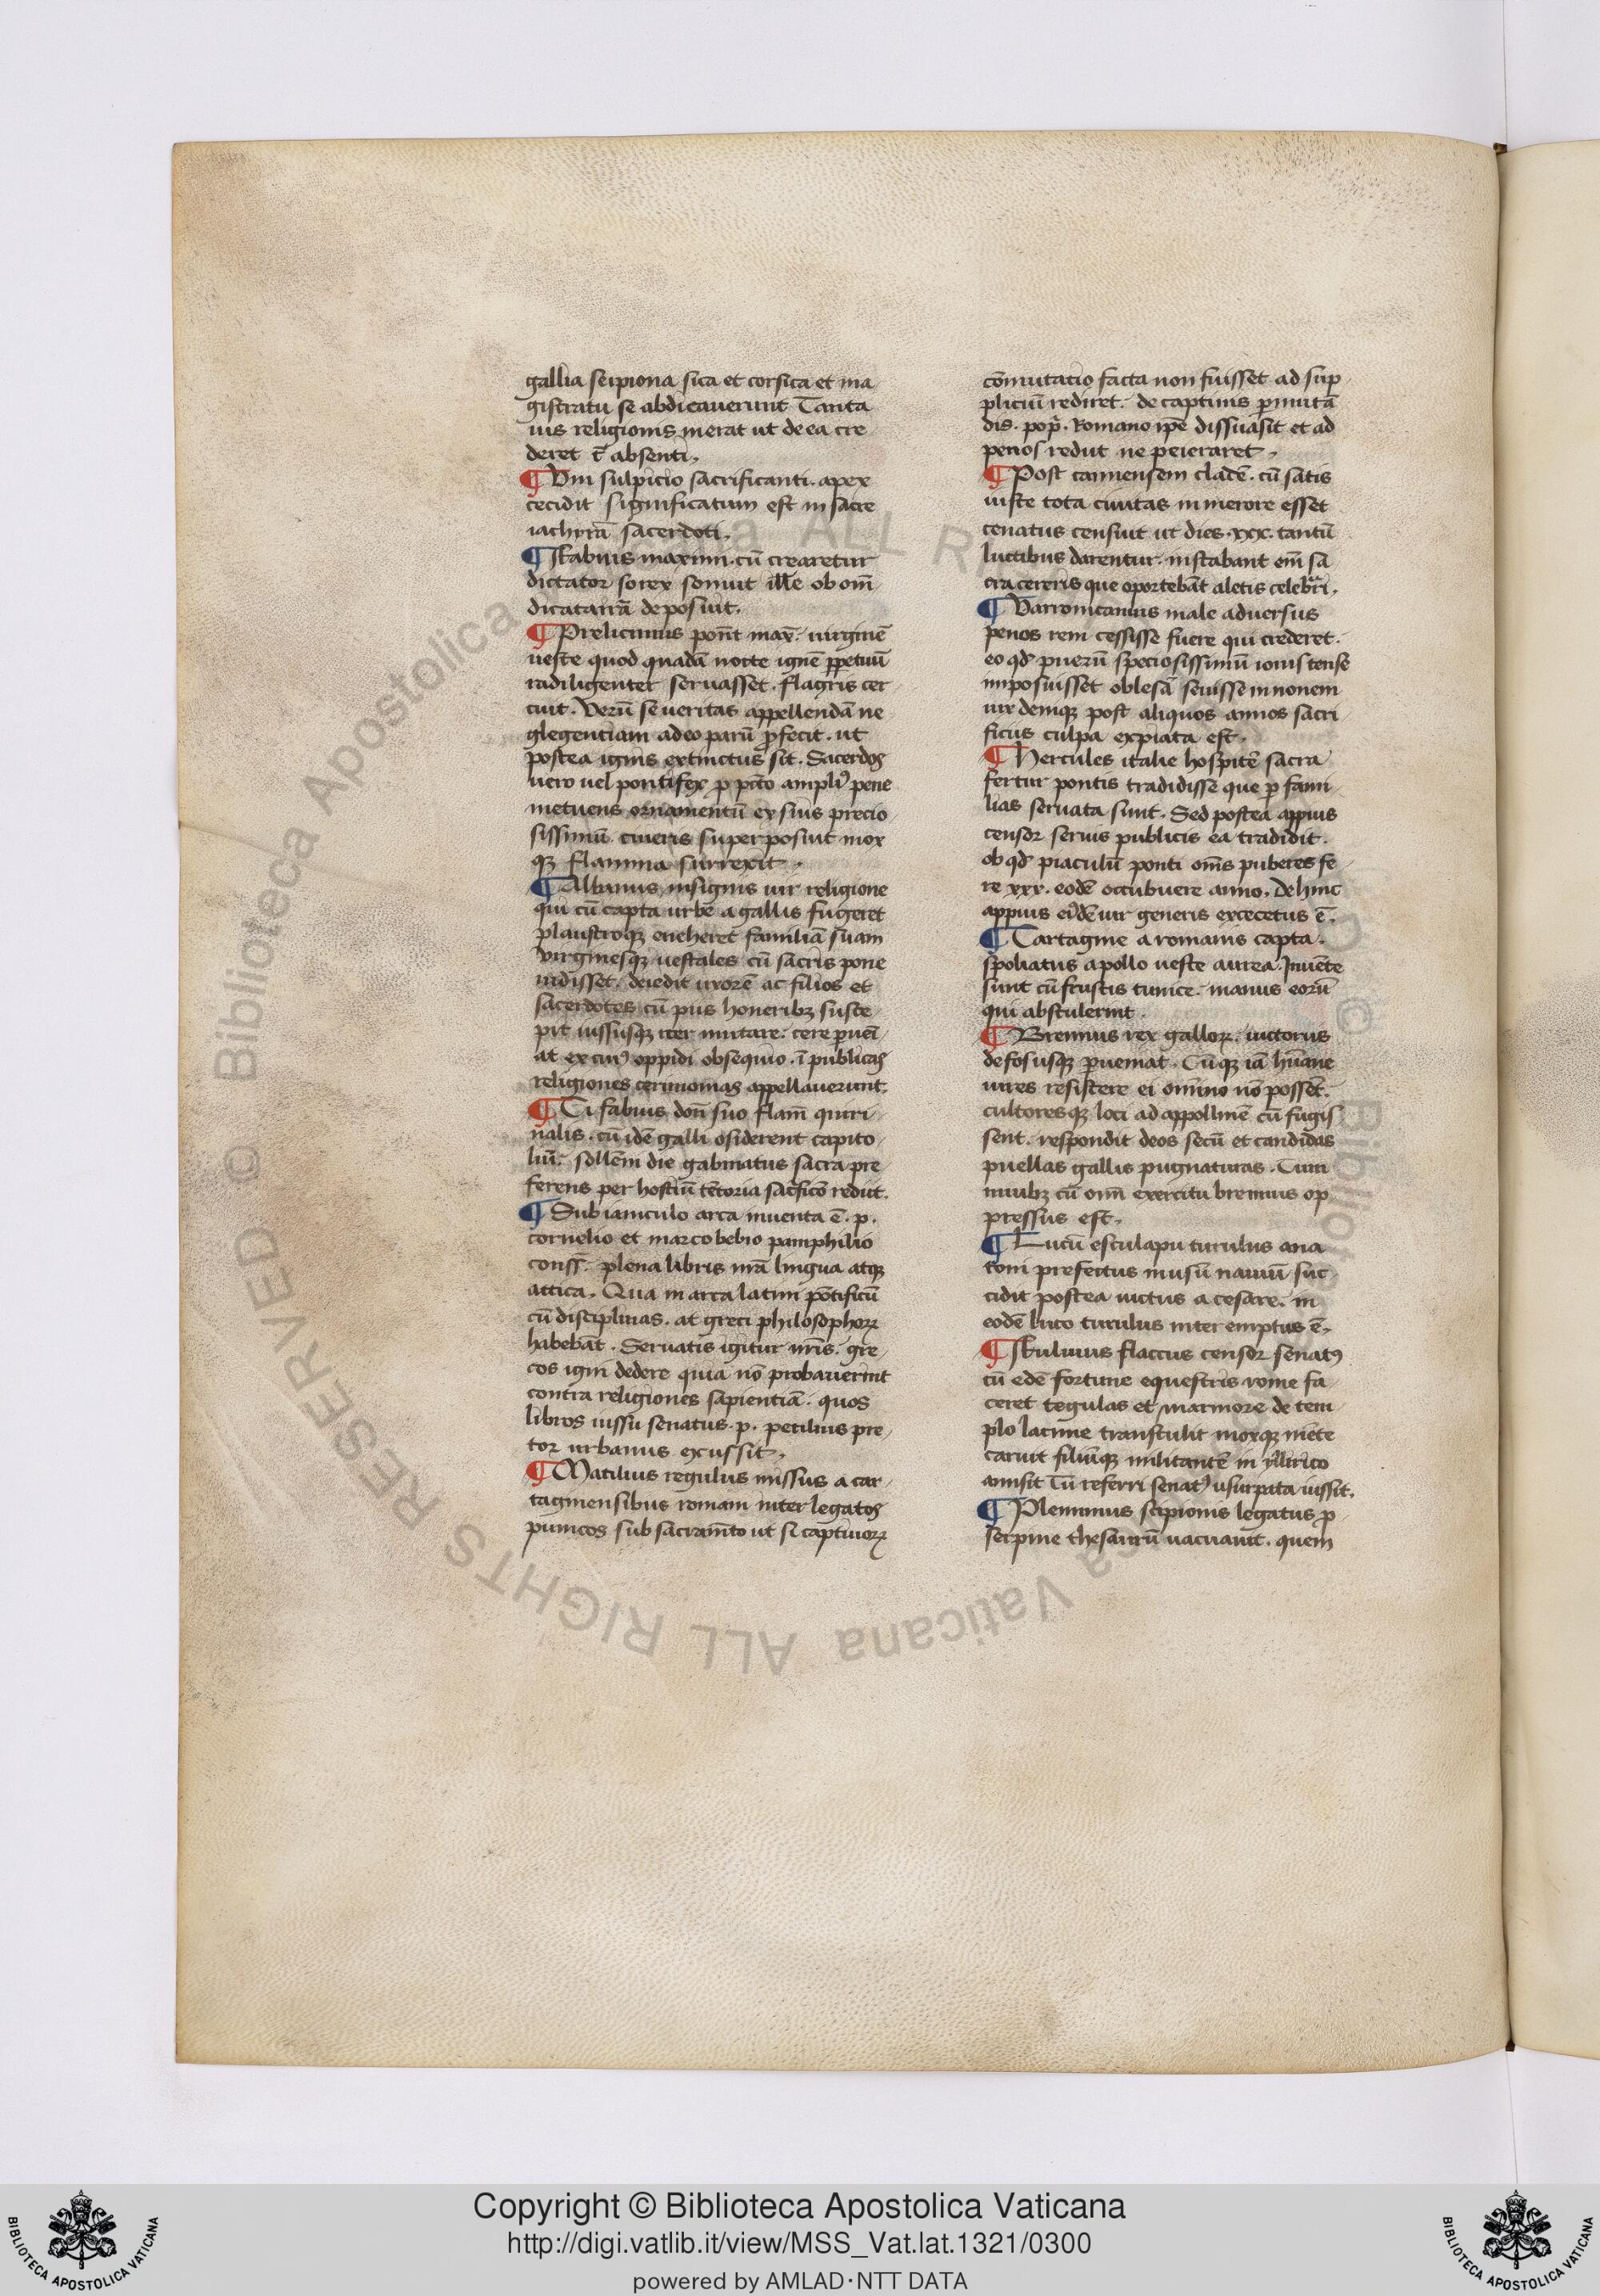 gallia scipiona sica et corsica et ma
gistratu se abdicauerunt Tanta
uis religionis inerat ut de ea cre
deret c̄ absenti.
¶ Vm sulpicio sacrificanti. apex
cecidit significatum est in sacre
iachyrā sacerdoti.
¶ Fabius maximi. cū crearetur
dictator sorex sonuit ille ob om̄
dicatarrā deposuit.
¶ Prelicinius pont̄ max̄. uirginē
ueste quod quadā nocte ignē ꝑpetuū
radiligenter seruasset. flagris cer
cuit. Verū seueritas appellendā ne
glegentiam adeo parū ꝓfecit. ut
postea ignis extinctus sit. Sacerdos
uero uel pontifex ꝓ pc̄to ampliꝰ pene
metuens ornamentū ex suis precio
sissimū cineris superposuit mox
qꝫ flamma surrexit.
¶ Albanus insignis uir religione
qui cū capta urbē a gallis fugeret
plaustroqꝫ eueheret familiā suam
virginesqꝫ uestales cū sacris pone
uidisset. deiedit uxorē ac filios et
sacerdotes cū piis honeribꝫ susce
pit iussusqꝫ iter mutare. cere ꝑuei
at ex cuiꝰ oppidi obsequio. ī publicas
religiones cerimonias appellauerunt.
¶ Ci fabius don̄ suo flam̄ quiri
nalis. cū idē galli osiderent capito
liū. sollēm die gabinatus sacra pre
ferens per hostiū tētoria sacfico rediit.
¶ Sub ianiculo arca inuenta ē. p.
cornelio et marco bebio pamphilio
conss̄. plena libris nrā lingua atqꝫ
attica. Qua in arca latini pōtificū
cū disciplinas. at greci philosophorꝝ
habebāt. Seruatis igitur nr̄is. gre
cos igni dedere quia nō probauerint
contra religiones sapientiā. quos
libros iussu senatus. p. petilius pre
tor urbanus excussit.
¶ Matilius regulus missus a car
taginensibus romam inter legatos
punicos sub sacram̄to ut si captiuorꝝ
cōmutatio facta non fuisset ad sup
pliciū rediret. de captiuis ꝑmutā
dis. popꝉ. Romano ip̄e dissuasit et ad
penos rediit ne peieraret.
¶ Post cannensem cladē. cū satis
iuste tota ciuitas in merore esset
cenatus censuit ut dies. xxx. tantū
luctibus darentur. instabant em̄ sa
cra cereris que oportebāt aletis celebrī.
¶ Varronicanius male aduersus
penos rem cessisse fuere qui crederet.
eo qđ puerū speciosissimū iouis tense
imposuisset oblesā seuisse iunonem
uix demqꝫ post aliquos annos sacri
ficus culpa expiata est.
¶ Hercules italie hospitē sacra
fertur pontis tradidisse que ꝑ fami
lias seruata sunt. Sed postea appius
censor seruis publicis ea tradidit.
ob qđ piaculū ponti om̄s puberes fe
re xxx. eodē occubuere anno. dehinc
appius eidē uir generis excecetus ē.
¶ Cartagine a romanis capta.
spoliatus apollo ueste aurea. Inuēte
sunt cū frustis tunice. manus eorū
qui abstulerint.
¶ Brennus rex gallorꝝ. uictorus
defosusqꝫ ꝑueniat. Cūqꝫ iā hūane
uires resistere ei om̄ino nō possēt.
cultoresqꝫ loci ad appollinē cū fugis
sent. respondit deos secū et candidas
puellas gallis pugnaturas. Cum
niuibꝫ cū om̄i exercitu brennus op
pressus est.
¶ Lucū esculapii turulus ana
roni prefectus nusū nauiū suc
cidit postea uictus a cesare. in
eodē luco turulus interemptus ē.
¶ Fuluius flaccus censor senatꝰ
cū edē fortune equestris rome fa
ceret tegulas et marmore de tem
plo lacinie transtulit moxqꝫ mēte
caruit filiūqꝫ militantē in yllirico
amisit Cū referri senatꝰ usurpata iussit.
¶ Pleminius scipionis legatus ꝓ
serpine thesaurū uacuauit. quem
Copyright © Biblioteca Apostolica Vaticana
http://digi.vatlib.it/view/MSS_Vat.lat.1321/0300
powered by AMLAD·NTT DATA
BIBLIOTECA APOSTOLICA VATICANA
BIBLIOTECA APOSTOLICA VATICANA